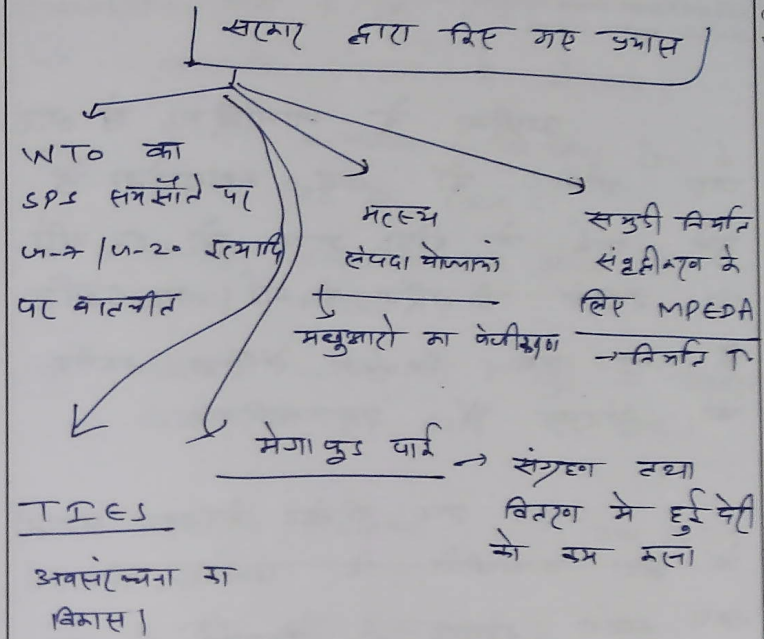 सरकार द्वारा किए गए प्रयास
WTO का
SPS समझौते पर
जी-7 / जी-20 इत्यादि
पर बातचीत
मत्स्य
संपदा योजनाएं
मछुआरो का पंजीकरण
समुद्री निर्यात
संवृद्धीकरण के
लिए MPEDA
→ निर्यात ↑
मेगा फूड पार्क → संग्रहण तथा
वितरण मे हुई देरी
को कम करना
TIES
अवसंरचना का
विकास।